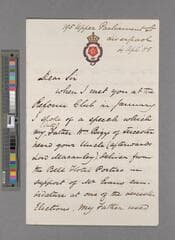 195 Upper Parliament St
Liverpool
4 Apl. 88.
Dear Sir
When I met you at the
Reform Club in January
I spoke of a speech which
my father Mr Biggs of Leicester
heard your Uncle (afterwards
Lord Macaulay) deliver from
the Bell Hotel Portico in
support of Mr Evans can-
didature at one of the
Elections. My father used